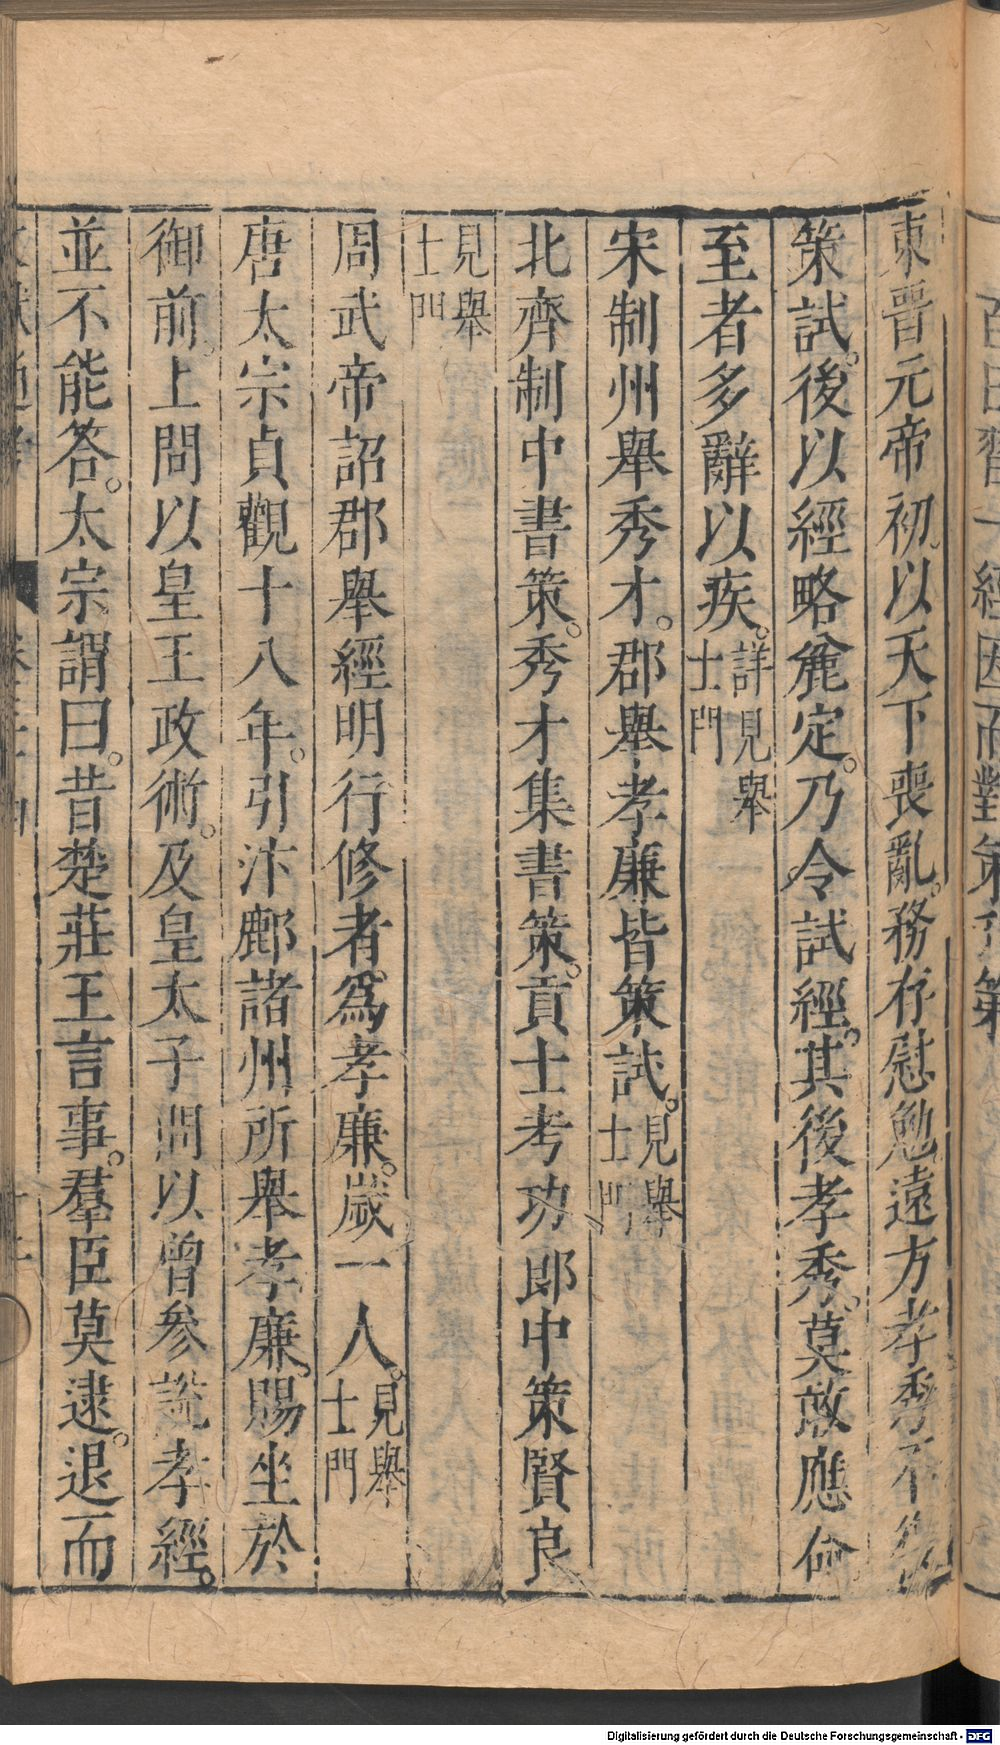 東晉元帝初以天下喪亂。務存慰勉遠方孝秀不
策試。後以經略麄定。乃令試經。其後孝秀。莫敢應命
至者多辭以疾。詳見舉士門
宋制州舉秀才。郡舉孝廉皆策試。見舉士門
北齊制中書策。秀才集書策。貢士考功郎中策賢良
見舉士門
周武帝詔郡舉經明行修者。爲孝廉。歲一人。見舉士門
唐太宗貞觀十八年。引汴鄜諸州所舉孝廉。賜坐於
御前。上問以皇王政術。及皇太子問以曾參說孝經。
並不能答。太宗謂曰。昔楚莊王言事。羣臣莫逮。退而
Digitalisierung gefördert durch die Deutsche Forschungsgemeinschaft - DFG